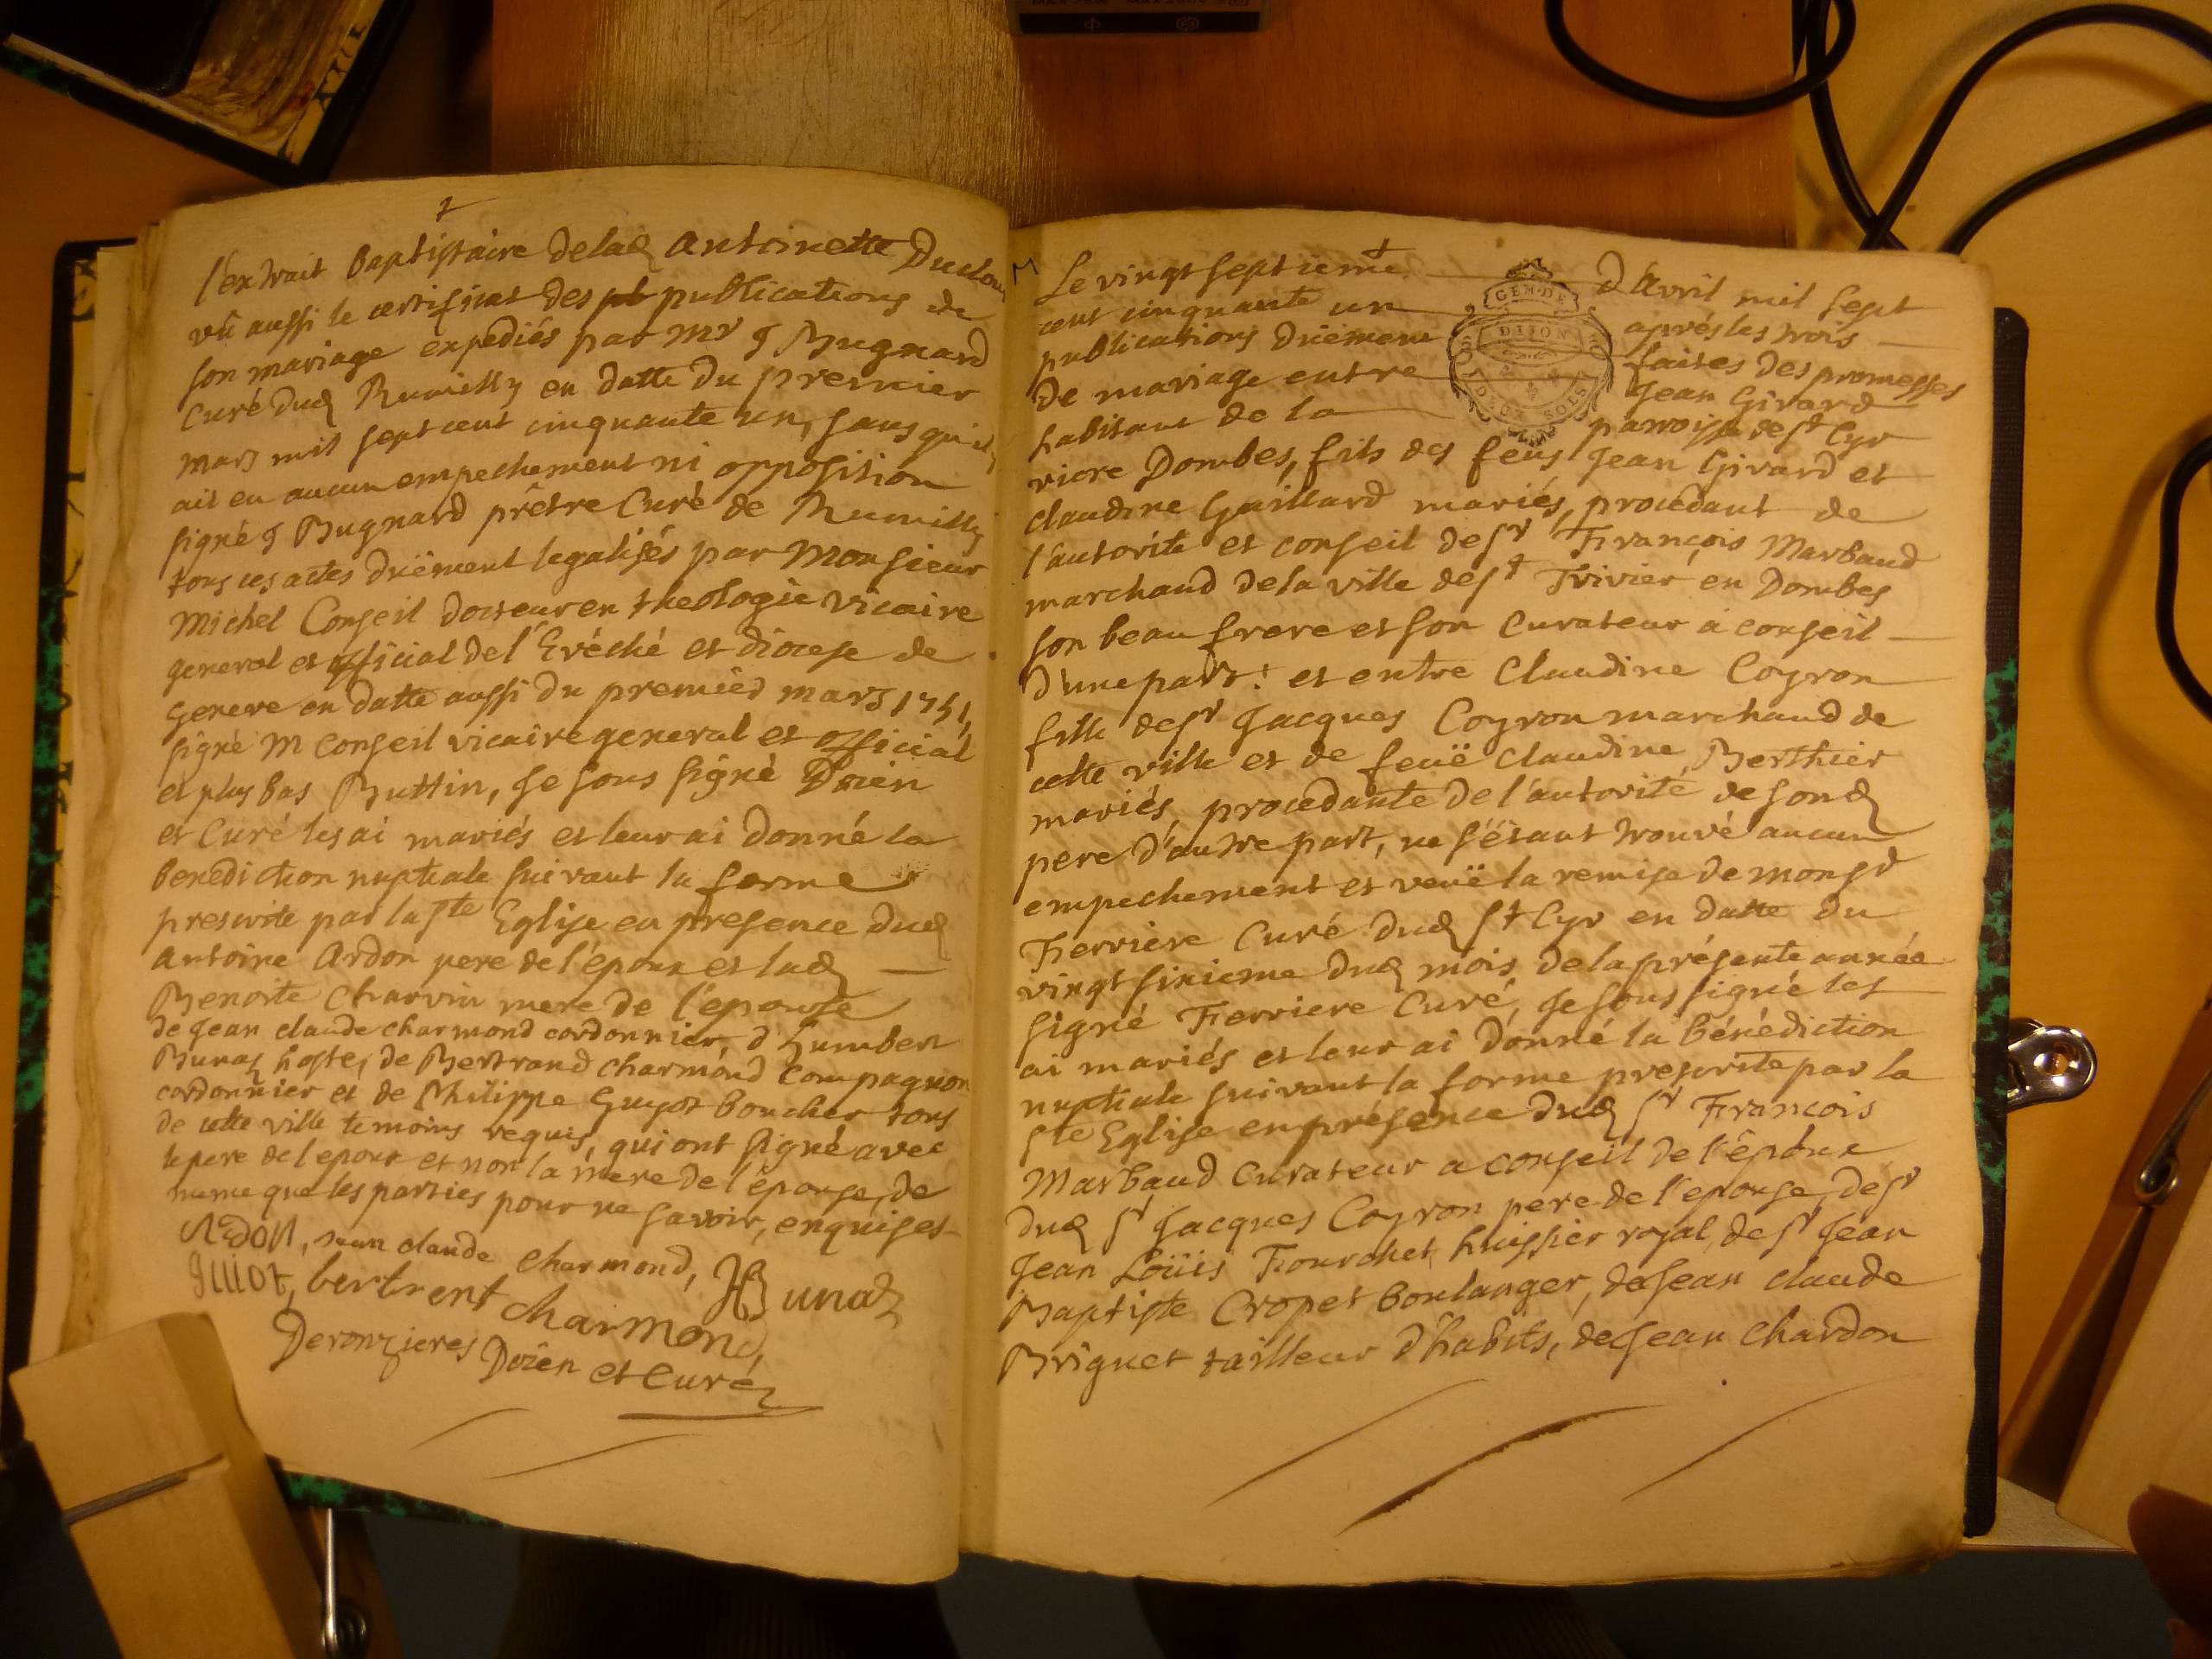 l'extrait baptistaire de lad Antoinette
vû aussi le certificat des publications de
son mariage expediés par Mr J Bugnard
Curé dud Rumilly en datte du premier
mars mil sept cent cinquante un, sans qu'il y
ait eu aucun empechement ni opposition
signé J Bugnard prêtre Curé de Rumilly
tous ces actes düement legalisés par Monsieur
Michel Conseil docteur en theologie vicaire
general et official de l'Evêché et diocese de
Geneve en datte aussi du premier mars 1751,
signé M Conseil vicaire general et official
et plus bas Buttin, Je sous signé Doien
et Curé les ai mariés et leur ai donné la
benediction nuptiale suivant la forme
prescrite par la ste Eglise en presence dud
Antoine Ardon pere de l'époux et lad
Benoite Charvin mere de l'epouse
de Jean claude charmond cordonnier, d'humbert
Bunaz hoste, de Bertrand charmond compagnon
cordonnier et de Philippe Guyot boucher tous
de cette ville temoins requis, qui ont signé avec
le pere de l'epoux et non la mere de l'épouse, de
meme que les parties pour ne savoir, enquises
Ardon, jean claude charmond, HBunaz
guiot, bertrent charmond,
Deronzieres Doien et Curé
M
Le vingt septieme d'Avril mil sept
cent cinquante un après les trois
publications düement faites des promesses
de mariage entre Jean Girard
habitant de la parroisse de st Cyr
viere Dombes, fils des feus Jean Girard et
claudine Guillard mariés, procedant de
l'autorité et conseil de sr François Marbaud
marchand de la ville de st Trivier en Dombes
son beau frere et son Curateur a conseil
d'une part: et entre Claudine Coyron
fille de sr Jacques Coyron marchand de
cette ville et de feuë Claudine Berthier
mariés, procedante de l'autorité de sond
pere d'autre part, ne s'étant trouvé aucun
empechement et veuë la remise de monsr
Ferriere Curé dud st Cyr en datte du
vingt sixieme dud mois de la présente année
signé Ferriere Curé, Je sous signé les
ai mariés et leur ai donné la bénédiction
nuptiale suivant la forme prescrite par la
ste Eglise en présence dud sr François
Marbaud Curateur a conseil de l'époux
dud sr Jacques Coyron pere de l'epouse, de sr
Jean Loüis Fourchet huissier royal, de sr Jean
Baptiste Cropet boulanger, de Jean claude
Briguet tailleur d'habits, de Jean Chardon
GEN. DE
DIJON
DEUX SOLS